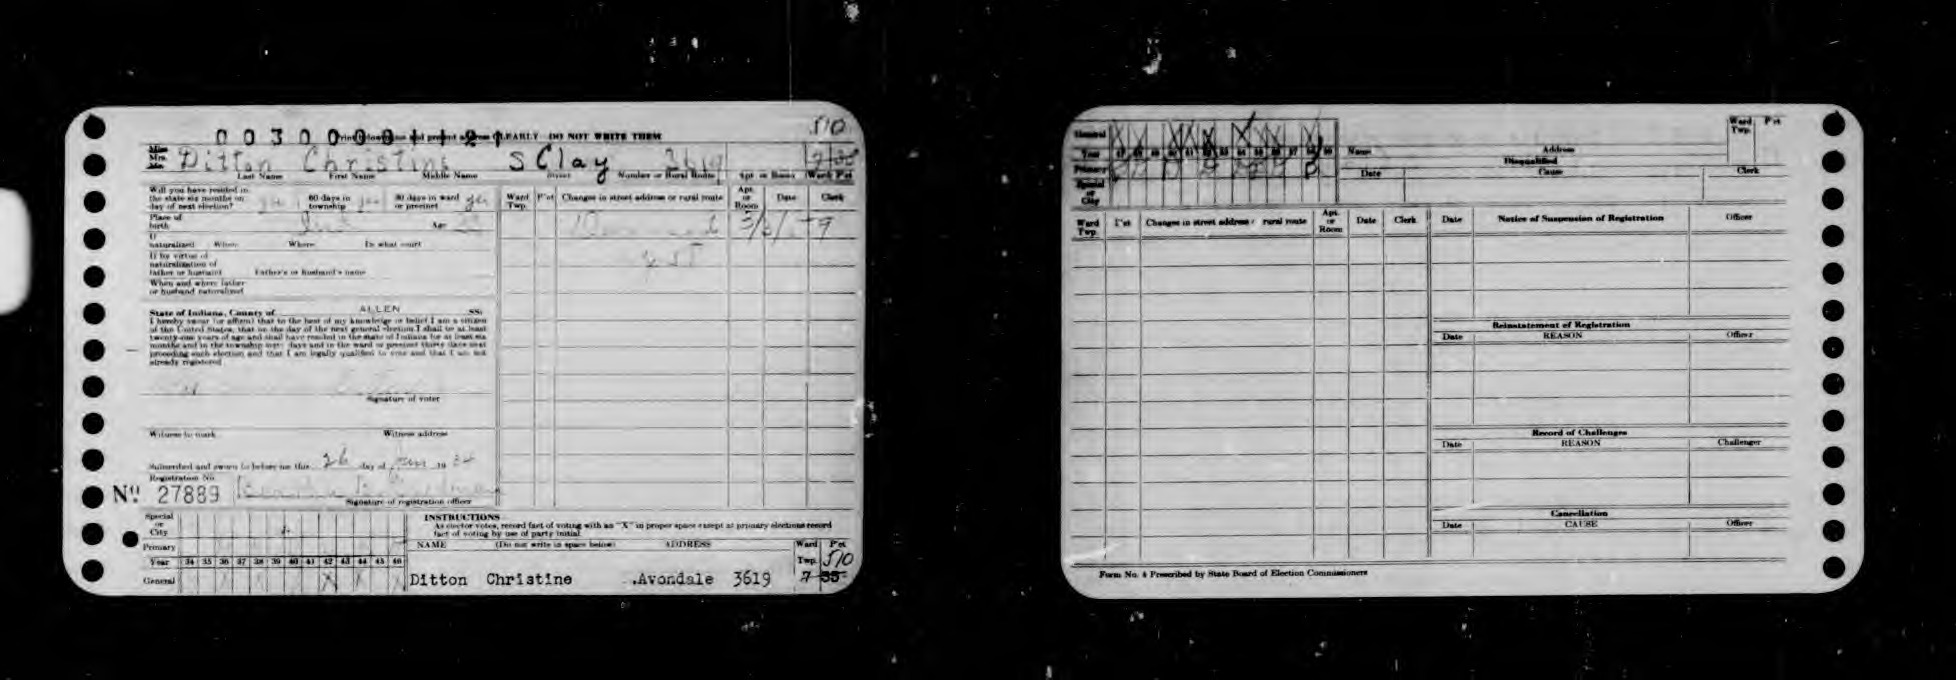 510
0 0 3 0 0 0 0 1 1 2 1
CLEARLY DO NOT WRITE THEM
Miss
Mrs.
Mr.
Ditton Christine S Clay 3619
Last Name First Name Middle Name Street Number or Rural Route Apt. or Room Ward Pct
Will you have resided in
the state six months on 60 days in 30 days in ward yes
day of next election? yes township yes or precinct
Ward Twp. Pct Changes in street address or rural route Apt. or Room Date Clerk
Place of
birth Ind Age
If
naturalized When Where In what court
If by virtue of
naturalization of
father or husband Father's or husband's name
When and where father
or husband naturalized
State of Indiana, County of ALLEN SS:
I hereby swear (or affirm) that to the best of my knowledge or belief I am a citizen
of the United States, that on the day of the next general election I shall be at least
twenty-one years of age and shall have resided in the state of Indiana for at least six
months and in the township sixty days and in the ward or precinct thirty days next
preceding such election and that I am legally qualified to vote and that I am not
already registered
Signature of voter
Witness to mark Witness address
Subscribed and sworn to before me this 26 day of 19 34
Registration No.
No 27889
Signature of registration officer
Special
or
City
Primary
Year 34 35 36 37 38 39 40 41 42 43 44 45 46
General
INSTRUCTIONS
As elector votes, record fact of voting with an "X" in proper space except at primary elections record
fact of voting by use of party initial.
NAME (Do not write in space below) ADDRESS Ward Twp. Pct
510
Ditton Christine Avondale 3619 7 35
General
Year 47 48 49 50 51 52 53 54 55 56 57 58 59
Primary
Special
or
City
Name Address Ward Twp. Pct
Disqualified
Date Cause Clerk
Ward Twp. Pct Changes in street address or rural route Apt. or Room Date Clerk
Date Notice of Suspension of Registration Officer
Reinstatement of Registration
Date REASON Officer
Record of Challenges
Date REASON Challenger
Cancellation
Date CAUSE Officer
Form No. 4 Prescribed by State Board of Election Commissioners